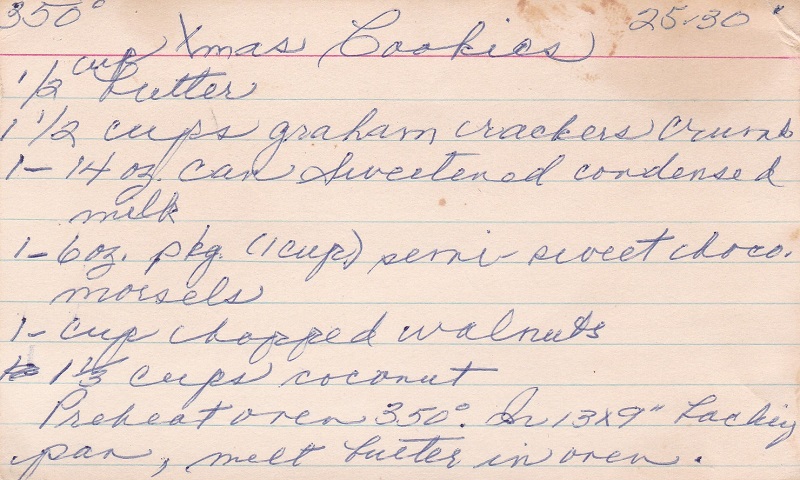 350° Xmas Cookies 25-30'
1/2 cup butter
1 1/2 cups graham crackers crumb
1- 14 oz. can sweetened condensed
milk
1- 6 oz. pkg. (1 cup) semi-sweet choco.
morsels
1- cup chopped walnuts
1 1/3 cups coconut
Preheat oven 350°. In 13x9" backing
pan, melt butter in oven.